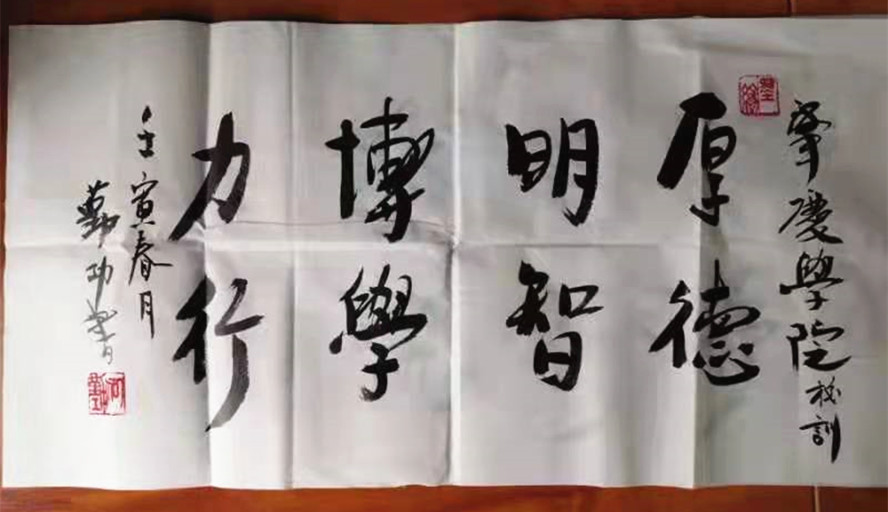 肇慶學院校訓
厚德
明智
博學
力行
壬寅春月
勤功書